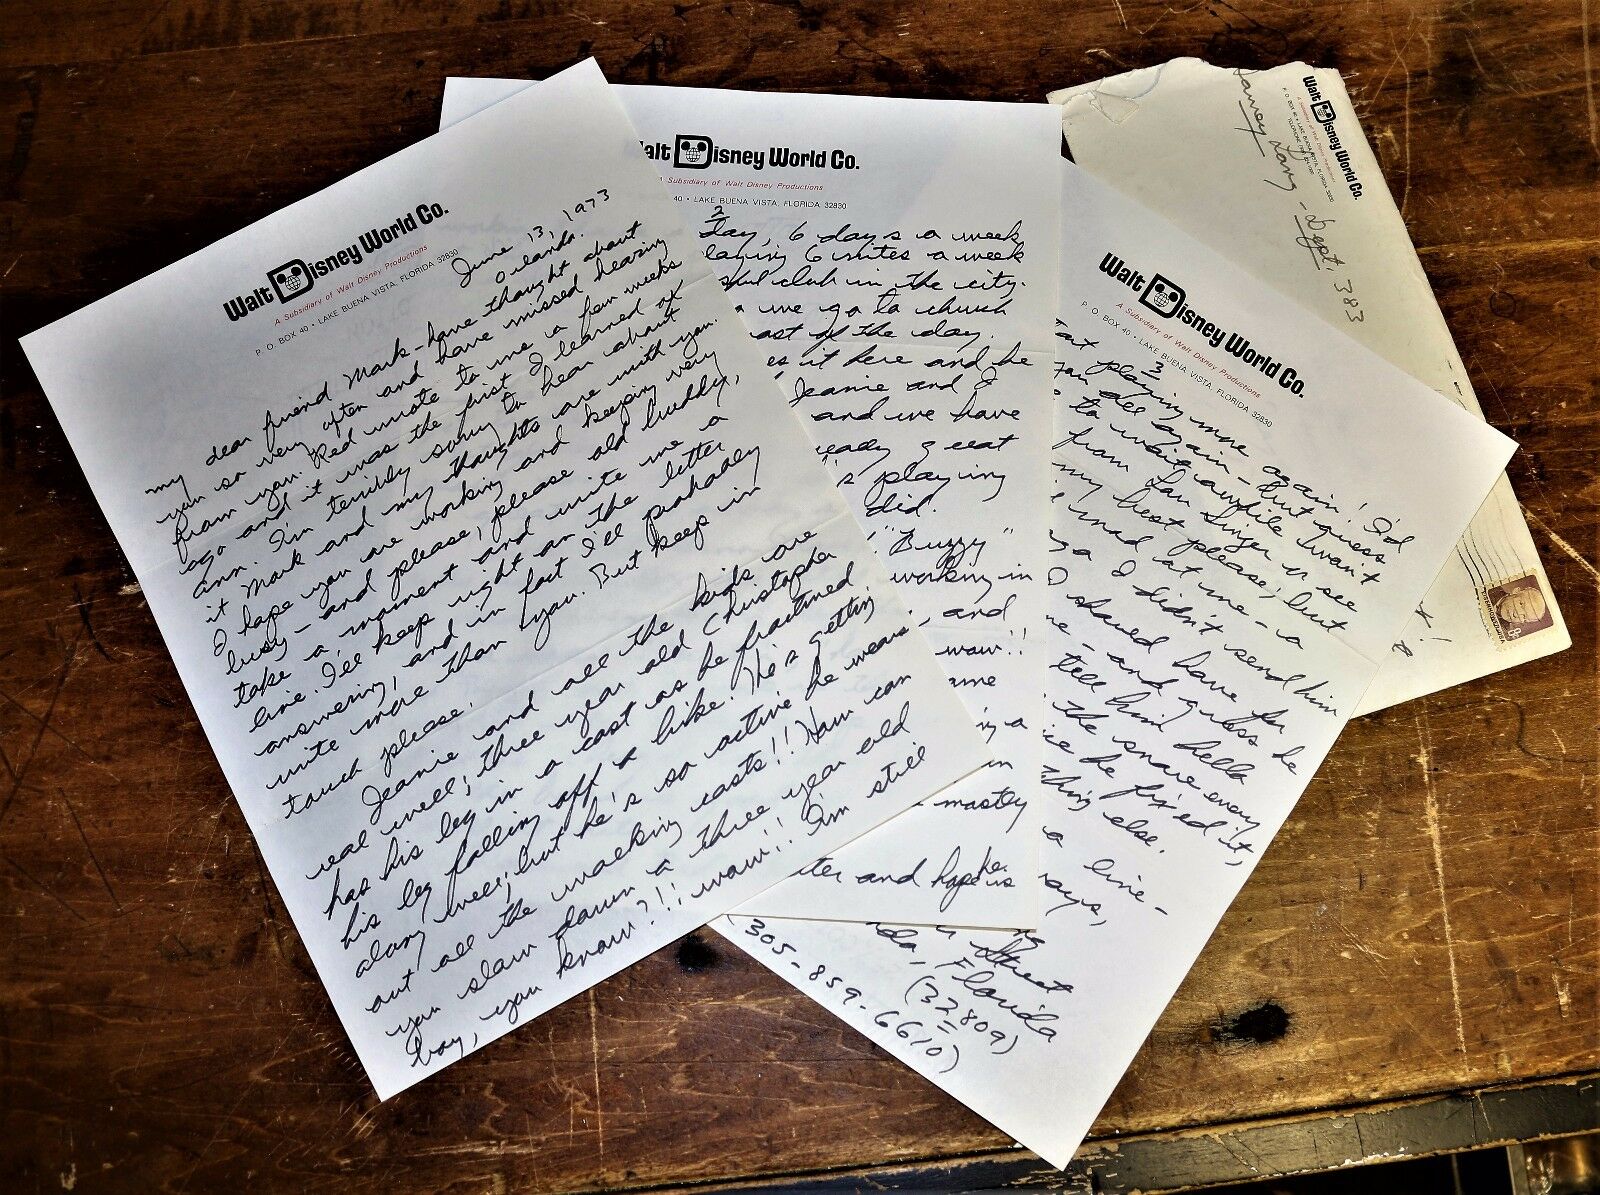 Walt Disney World Co.
A Subsidiary of Walt Disney Productions
P. O. BOX 40 • LAKE BUENA VISTA, FLORIDA 32830
June 13, 1973
Orlando.
my dear friend Mark - have thought about
you so very often and have missed hearing
from you. Red wrote to me a few weeks
ago and it was the first I learned of
Ann. I'm terribly sorry to hear about
it Mark and my thoughts are with you.
I hope you are working and keeping very
busy - and please, please old buddy,
take a moment and write me a
line. I'll keep right on the letter
answering, and in fact I'll probably
write more than you. But keep in
touch please.
Jeanie and all the kids are
real well; three year old Christopher
has his leg in a cast as he fractured
his leg falling off a bike. He's getting
along well, but he's so active he wears
out all the walking casts!! How can
you slow down a three year old
boy, you know?!! wow!! I'm still
alt Disney World Co.
A Subsidiary of Walt Disney Productions
40 • LAKE BUENA VISTA, FLORIDA 32830
2
day, 6 days a week
laying 6 nites a week
club in the city.
we go to church
ast of the day.
es it here and he
Jeanie and I
and we have
ready great
's playing
did.
"Buzzy"
working in
and
wow!!
ame
g a
in
mostly
ter and hope he
is
Walt Disney World Co.
A Subsidiary of Walt Disney Productions
P. O. BOX 40 • LAKE BUENA VISTA, FLORIDA 32830
3
art playing more again! I'd
you all again - but guess
to wait awhile won't
from Lou Singer u see
my best please; but
mad at me - a
go I didn't send him
I shoud have for
me - and guess he
tell him hello
the snare every
ce he fixed it,
thing else.
a line -
ays,
ng
Street
da, Florida
(32809)
305-859-6610)
Walt Disney World Co.
Lary - Dept. 383